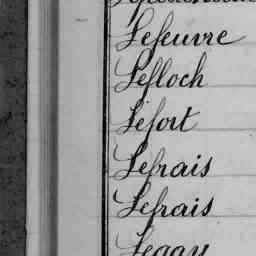 Lefeuvre
Lefloch
Lefort
Lefrais
Lefrais
Legay